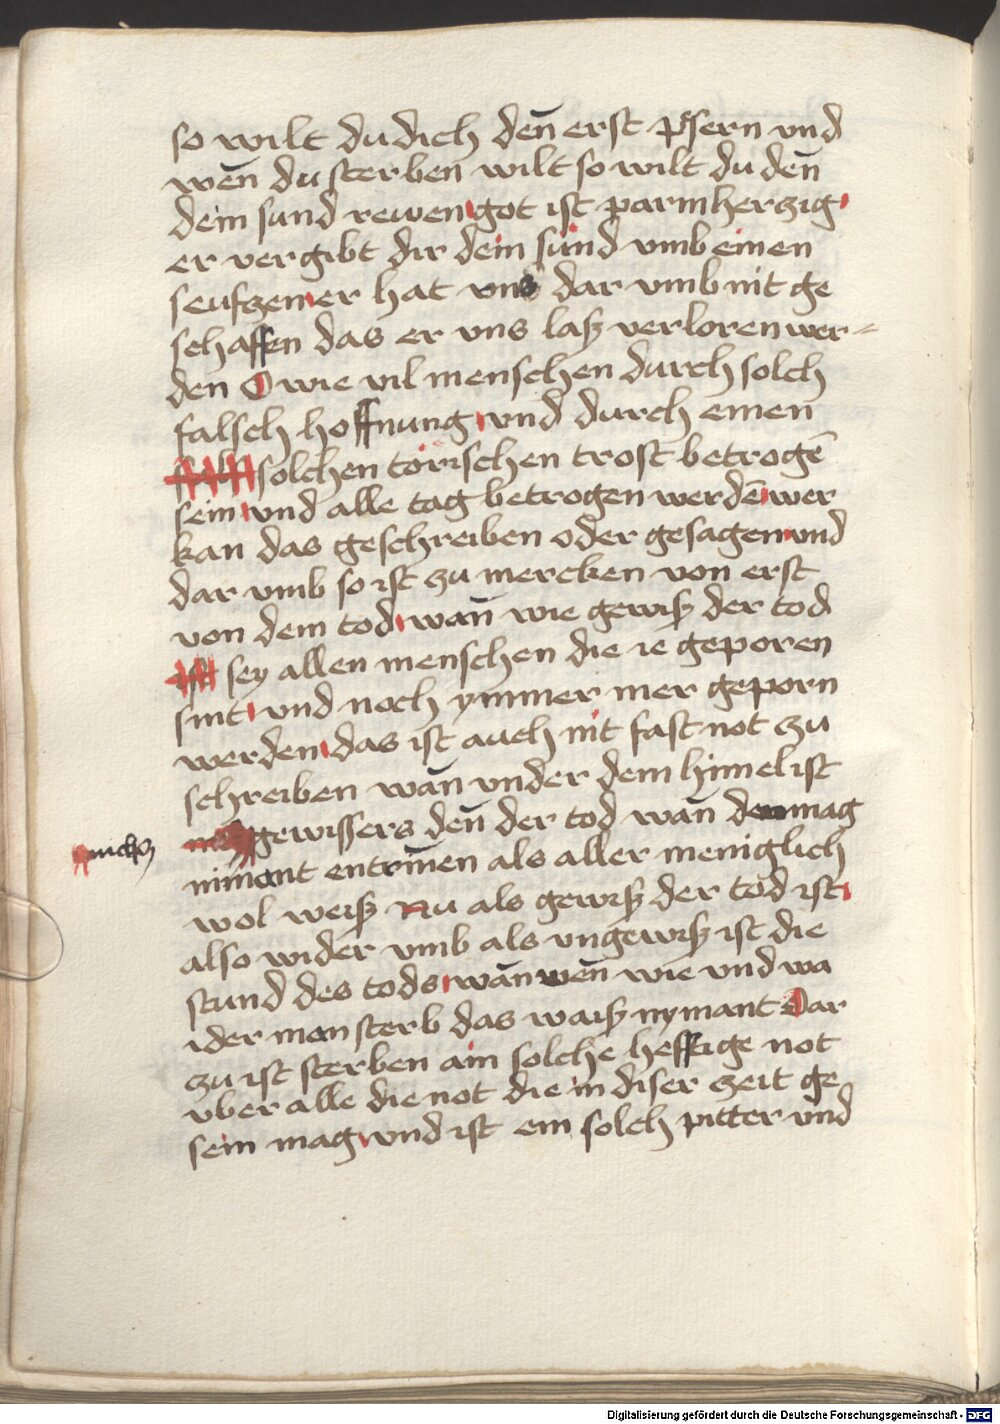 so wilt du dich den̄ erst pesern vnd
wen̄ du sterben wilt so wilt du den̄
dein sund rewen got ist parmherczig
er vergibt dir dein sünd vmb einen
seufczen er hat vns dar vmb nit ge
schaffen das er vns laß verloren wer=
den O wie vil menschen durch solch
falsch hoffnung vnd durch einen
solchen törischen trost betrogē
sein vnd alle tag betrogen werdē wer
kan das geschreiben oder gesagen vnd
dar vmb so ist zu mercken von erst
von dem tod wan̄ wie gewiß der tod
ist sey allen menschen die ie geporen
sint vnd noch ymmer mer geporn
werden das ist auch nit fast not zu
schreiben wan̄ vnder dem himel ist
nichcz gewissers den̄ der tod wan̄ dem mag
nimant entrin̄en als aller meniglich
wol weiß Nu als gewiß der tod ist
also wider vmb als vngewiß ist die
stund des tods wan̄ wen̄ wie vnd wa
ider man sterb das waiß nymant Dar
zu ist sterben ain solche hefftige not
vber alle die not die in diser zeit ge
sein mag vnd ist ein solch pitter vnd
Digitalisierung gefördert durch die Deutsche Forschungsgemeinschaft - DFG